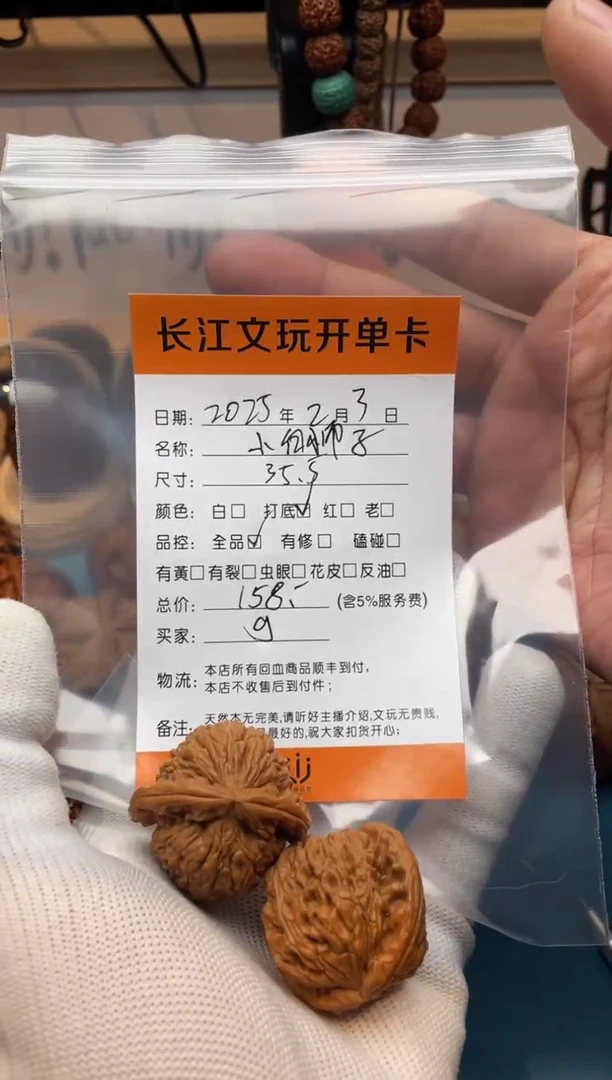 长江文玩开单卡
日期: 2025年2月3日
名称: 小狮子
尺寸: 35.5
颜色: 白□ 打底☑ 红□ 老□
品控: 全品☑ 有修□ 磕碰□
有黄□有裂□虫眼□花皮□反油□
总价: 158.- (含5%服务费)
买家: 9
物流: 本店所有回血商品顺丰到付,
本店不收售后到付件;
备注: 天然本无完美,请听好主播介绍,文玩无贵贱,
最好的,祝大家扣货开心;